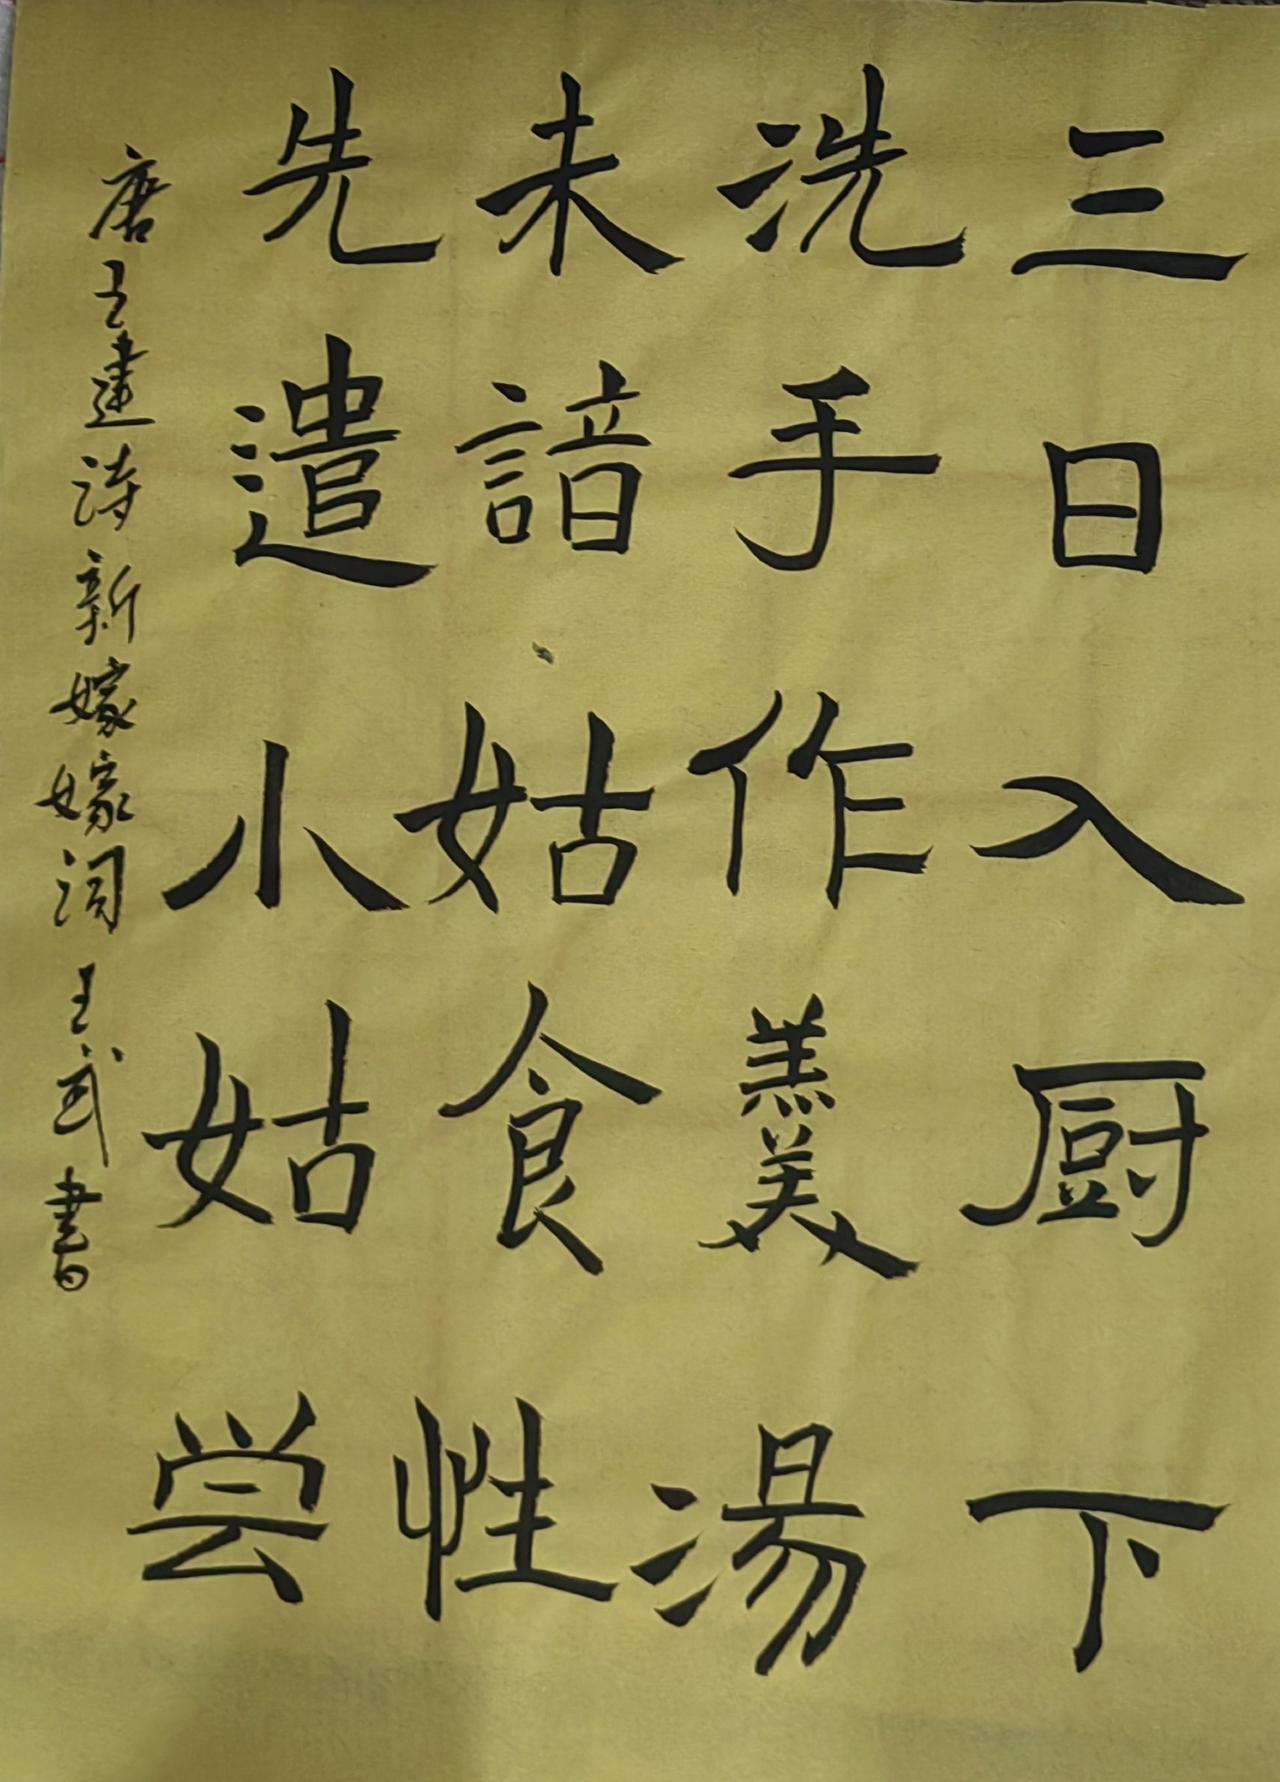 三日入厨下
洗手作羹湯
未諳姑食性
先遣小姑尝
唐王建诗新嫁嫁词王武書